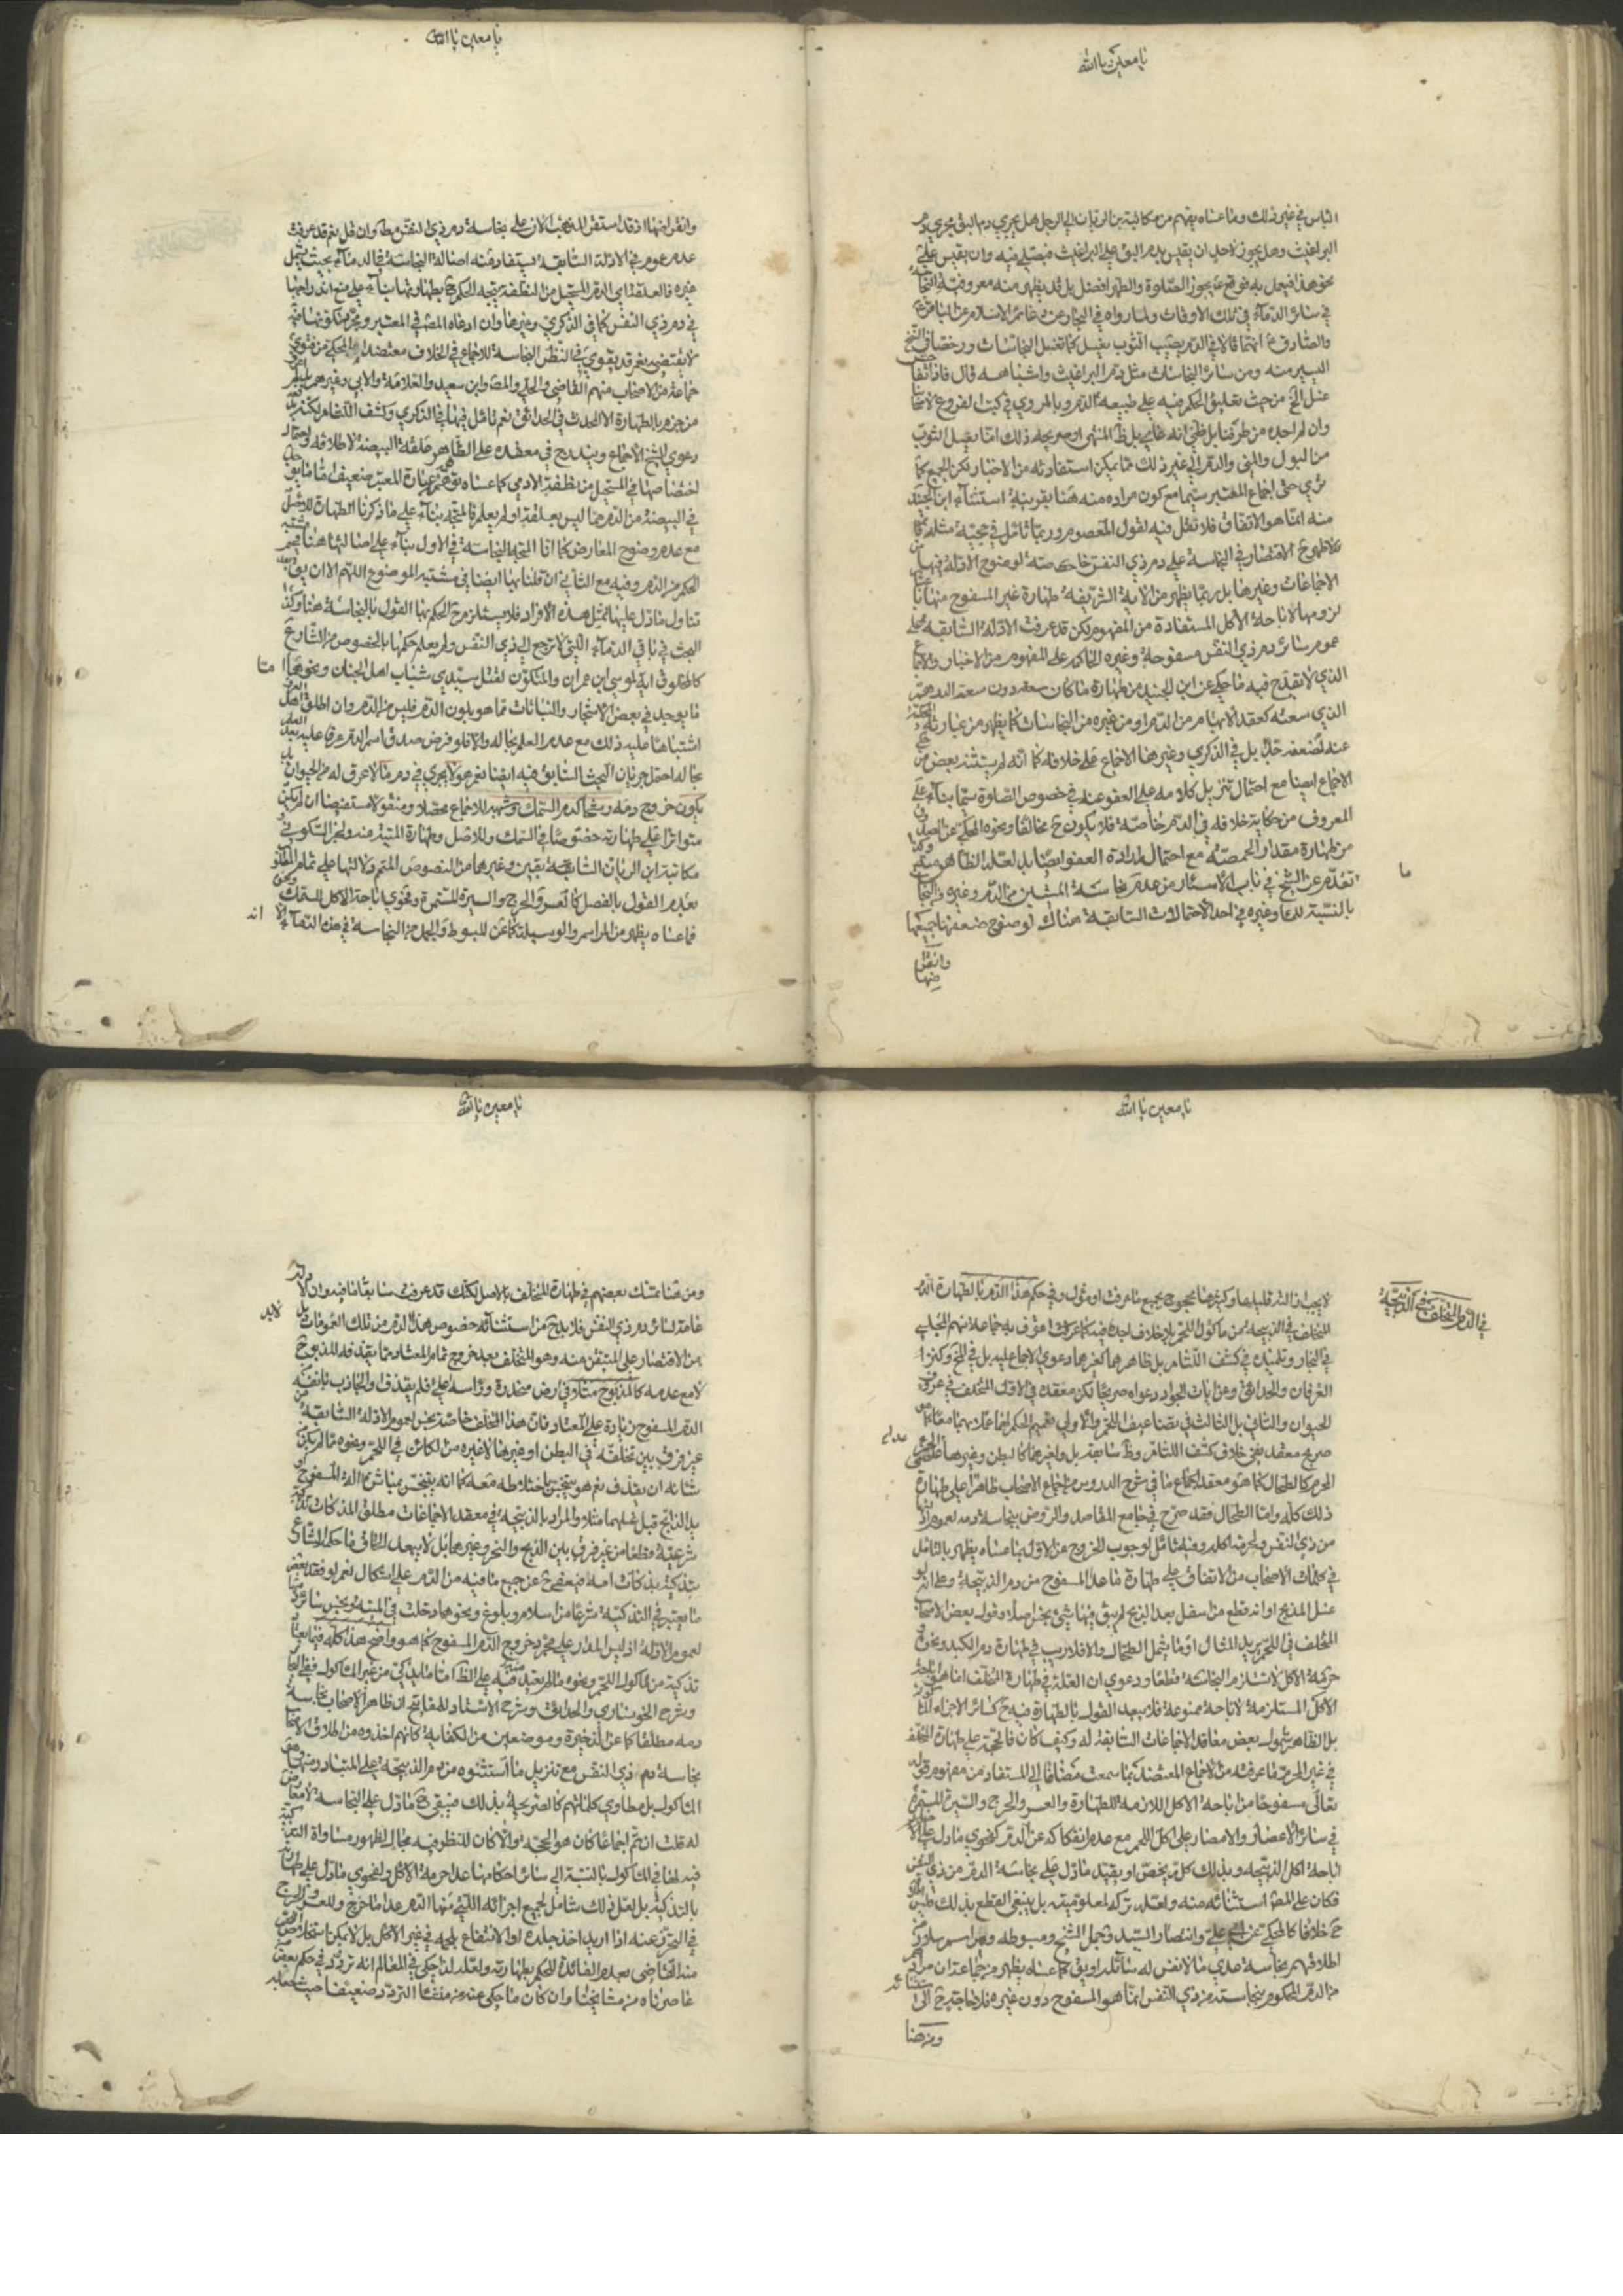 يا معين يا الله
الناس في غير ذلك وما عساه يفهم من مكاتبة بن الريان الى الرجل هل يجري دم البق مجرى دم
البراغيث وهل يجوز لاحد ان يقيس بدم البق على البراغيث فيصلي فيه وان يقيس على
نحو هذا فيعمل به فوقع ع يجوز الصلوة والطهر افضل بل قد يظهر منه معروفية النجاسة
في سائر الدماء في تلك الاوقات ولما رواه في البحار عن دعائم الاسلام عن الباقر ع
والصادق ع انهما قالا في الدم يصيب الثوب يغسل كما تغسل النجاسات ورخصا في النضح
اليسير منه ومن سائر النجاسات مثل دم البراغيث واشباهه قال فاذا تفاحش
غسل الخ من حيث تعليق الحكم فيه على طبيعة الدم وبالمروي في كتب الفروع لاصحابنا
وان لم اجده من طرقنا بل ظني انه عامي بل ظ المنتهى او صريحه ذلك انما يغسل الثوب
من البول والمني والدم الى غير ذلك مما يمكن استفادته من الاخبار لكن الجميع كما
ترى حتى اجماع المعتبر سيما مع كون مراده منه هنا بقرينة استثناء ابن الجنيد
منه انما هو الاتفاق فلا تغفل فيه لقول المعصوم وربما تأمل في حجية مثله
فالاظهر ح الاقتصار في النجاسة على دم ذي النفس خاصة لوضوح الادلة فيها من
الاجماعات وغيرها بل ربما يظهر من الاية الشريفة طهارة غير المسفوح منها
لزومها لاباحة الاكل المستفادة من المفهوم لكن قد عرفت الادلة السابقة على
عموم سائر دم ذي النفس مسفوحة وغيره الحاكم على المفهوم من الاخبار والاجماع
الذي لا يقدح فيه ما حكي عن ابن الجنيد من طهارة ما كان سعته دون سعة الدرهم
الذي سعته كعقد الابهام من الدم او من غيره من النجاسات كما يظهر من عبارته المحكية
عنه لضعفه جدا بل في الذكرى وغيرها الاجماع على خلافه كما انه لم يستثنه بعض من
الاجماع ايضا مع احتمال تنزيل كلامه على العفو عنه في خصوص الصلوة سيما بناء على
المعروف من حكاية خلافه في الدم خاصة فلا يكون ح مخالفا ونحوه المحكي عن الصدوق
من طهارة مقدار الحمصة مع احتمال ارادة العفو ايضا بل لعله الظاهر منه
تقدم عن الشيخ في باب الاسئار من عدم نجاسة المشتبه من الدم وغيره والنجاسة
ما
بالنسبة للماء وغيره في احد الاحتمالات السابقة هناك لوضوح ضعفها جميعها
وانقراضها
يا معين يا الله
وانقراضها اذ قد استقر المذهب الان على نجاسة دم ذي النفس مط كوان قل نعم قد عرفت
عدم عموم في الادلة السابقة يستفاد منه اصالة النجاسة في الدماء بحيث يشمل
غيره فالعلقة اي الدم المستحيل من النطفة يتجه الحكم ح بطهارتها بناء على منع اندراجها
في دم ذي النفس كما في الذكرى وغيرها وان ادعاه المص في المعتبر ومجرد تكونها فيه
لا يقتضي نعم قد يقوى في النظر النجاسة للاجماع في الخلاف معتضدا بالمحكي من فتوى
جماعة من الاصحاب منهم القاضي والحلي والمص وابن سعيد والعلامة والابي وغيرهم
من جزم بالطهارة الا المحدث في الحدائق نعم تامل فيها في الذكرى وكشف اللثام لكنه
دعوى الشيخ الاجماع ويندرج في معقده على الظاهر علقة البيضة لاطلاقه واحتمال
اختصاصها في المستحيل من نطفة الادمي كما عساه توهمه عبارة المعتبر ضعيف اما ما يوجد
في البيضة من الدم مما ليس بعلقة او لم يعلم فالمتجه بناء على ما ذكرنا الطهارة للاصل
مع عدم وضوح المعارض كما انا المتجه النجاسة في الاول بناء على اصالتها هنا فيعم
الحكم من الدم وفيه مع الثاني ان قلنا بها ايضا في مشتبه الموضوع اللهم الا ان يق
تناول ما دل عليها لمثل هذه الافراد فلا يستلزم ح الحكم بها القول بالنجاسة هنا وكذا
البحث في باقي الدماء التي لا ترجع الى ذي النفس ولم يعلم حكمها بالخصوص من الشارع
كالمخلوق اية لموسى ابن عمران والمتكون لقتل سيدي شباب اهل الجنان ونحوهما اما
متا
ما يوجد في بعض الاشجار والنباتات مما هو بلون الدم فليس من الدم وان اطلق اهل العرف
اشتباها عليه ذلك مع عدم العلم بحاله والا فلو فرض صدق اسم الدم عرفا عليه بعد العلم
بحاله احتمل جريان البحث السابق فيه ايضا نعم هو لا يجري في دم ما لا عرق له من الحيوان بل
يكون خروج دمه رشحا كدم السمك وشبهه للاجماع محصلا ومنقولا مستفيضا ان لم يكن
متواترا على طهارته خصوصا في السمك وللاصل وطهارة الميتة منه ولخبر السكوني
مكاتبة ابن الريان السابقة بقين وغيرهما من النصوص المتمم دلالتها على تمام المدعى
بعدم القول بالفصل كالعسر والحرج والسيرة المستمرة وفحوى اباحة الاكل للسمك ونحوه
فما عساه يظهر من المراسم والوسيلة كما عن المبسوط والجمل من النجاسة في هذه الدماء الا
انه
يا معين يا الله
في الدم المتخلف في الذبيحة
لا يجب ازالته قليلها وكثيرها محجوج بجميع ما عرفت او مئول وفي حكم هذا الدم بالطهارة الدم
المتخلف في الذبيحة من ماكول اللحم بلا خلاف اجده فيه كما عرفت اعترف به جماعة منهم المجلسي
في البحار وتلميذه في كشف اللثام بل ظاهرهما كغيرهما دعوى الاجماع عليه بل في لخ وكنز
العرفان والحدائق وعن ايات الجواد دعواه صريحا لكن معقده في الاول المتخلف في عروق
الحيوان والثاني بل الثالث في تضاعيف اللحم والاولى تعميم الحكم لهما عملا بهما معا كما هو
صريح معقد نفي خلاف كشف اللثام وظ سابقه بل ولغيرهما كالبطن وغيرها
الحرم كالطحال كما هو معقد اجماع ما في شرح الدروس من اجماع الاصحاب ظاهرا على طهارة
ذلك كله واما الطحال فقد صرح في جامع المقاصد والروض بنجاسة دمه لعموم
من ذي النفس ولحرمة اكله وفيه تامل لوجوب الخروج عن الاول بما عساه يظهر بالتامل
في كلمات الاصحاب من الاتفاق على طهارة ما عدا المسفوح من دم الذبيحة وعلى انه لو
غسل المذبح او انه قطع من اسفل بعد الذبح لم يبق فيها شيء نجس اصلا وقول بعض الاصحاب
المتخلف في اللحم يريد المثال او ما يشمل الطحال والا فلا ريب في طهارة دم الكبد ونحوه
حرمة الاكل لا تستلزم النجاسة قطعا ودعوى ان العلة في طهارة المتخلف انما هي اباحة
الاكل المستلزمة لاباحته ممنوعة فلا يبعد القول بالطهارة فيه ح كسائر الاجزاء
بل الظاهر شمول بعض معاقد الاجماعات السابقة له وكيف كان فالحجة على طهارة المتخلف
في غير المحرم ما عرفت من الاجماع المعتضد بما سمعت مضافا الى المستفاد من مفهوم قوله
تعالى مسفوحا من اباحة الاكل اللازمة للطهارة والعسر والحرج والسيرة المستمرة
في سائر الاعصار والامصار على اكل اللحم مع عدم انفكاكه عن الدم كفحوى ما دل على
اباحة اكل الذبيحة وبذلك كله يخص او يقيد ما دل على نجاسة الدم من ذي النفس
فكان على المص استثنائه منه ولعله تركه لمعلوميته بل ينبغي القطع بذلك فليس
ح خلافا كالمحكي عن علي وانتصار السيد وجمل الشيخ ومبسوطه ومراسم سلار
اطلاقهم نجاسة ما لا نفس له سائلة او يق كما عساه يظهر من جماعة ان مرادهم
من الدم المحكوم بنجاسته من ذي النفس انما هو المسفوح دون غيره فلا حاجة ح الى
استثنائه
ومن هنا
يا معين يا الله
ومن هنا تمسك بعضهم في طهارة المتخلف بالاصل لكنك قد عرفت سابقا ما فيه وان الادلة
عامة لسائر دم ذي النفس فلا بد ح من استثنائه خصوص هذا الدم من تلك العمومات بل
لابد
من الاقتصار على المتيقن منه وهو المتخلف بعد خروج تمام المعتاد مما يقذفه المذبوح
لا مع عدمه كالمذبوح مثلا في ارض منحدرة ورأسه اعلى فلم يقذف او الجاذب بنفسه من
الدم المسفوح زيادة على المعتاد فان هذا المتخلف خاصة نجس لعموم الادلة السابقة
غير فرق بين تخلفه في البطن او غيرها لا غيره من الكائن في اللحم ونحوه مما لم يكن
شانه ان يقذف نعم هو ينجس باختلاطه معه كما انه يتنجس بمباشرة الة المسفوح او
يد الذابح قبل غسلهما مثلا والمراد بالذبيحة في معقد الاجماعات مطلق المذكاة تذكية
شرعية قطعا من غير فرق بين الذبح والنحر وغيرهما بل لا يبعد الحاق ما حكم الشارع
بتذكيته بذكاة امه فيعفى ح عن جميع ما فيه من الدم على اشكال نعم لو فقد بعض
ما يعتبر في التذكية شرعا من اسلام وبلوغ ونحوهما دخلت في الميتة ونجس سائر دمها
لعموم الادلة اذ ليس المدار على مجرد خروج الدم المسفوح كما هو واضح هذا كله فيما يعتاد
تذكيته من ماكول اللحم ونحوه ما لم يعتد فيه على الظ اما ما يذكى من غير الماكول ففي البحار
وشرح الخونساري والحدائق وشرح الاستاد للمفاتيح ان ظاهر الاصحاب نجاسة
دمه مطلقا كما عن الذخيرة وموضعين من الكفاية كانهم اخذوه من اطلاق الاصحاب
نجاسة دم ذي النفس مع تنزيل ما استثنوه من دم الذبيحة على المتبادر وهو
الماكول بل مطاوي كلماتهم كالصريحة بذلك فيبقى ح ما دل على النجاسة لا معارض
له قلت ان تم اجماعا كان هو الحجة والا كان للنظر فيه مجال لظهور مساواة التذكية
فيه لها في الماكول بالنسبة الى سائر احكامها عدا حرمة الاكل ولفحوى ما دل على طهارته
بالتذكية بل لعل ذلك شامل لجميع اجزائه التي منها الدم عدا ما خرج وللعسر والحرج
في التحرز عنه اذا اريد اخذ جلده او الانتفاع بلحمه في غير الاكل بل لا يمكن
منه القاضي بعدم الفائدة للحكم بطهارته ولعله لذا حكي في المعالم انه تردد في حكم بعض
عاصرناه من مشايخنا وان كان ما حكي عنه من منشأ التردد ضعيفا حيث جعله